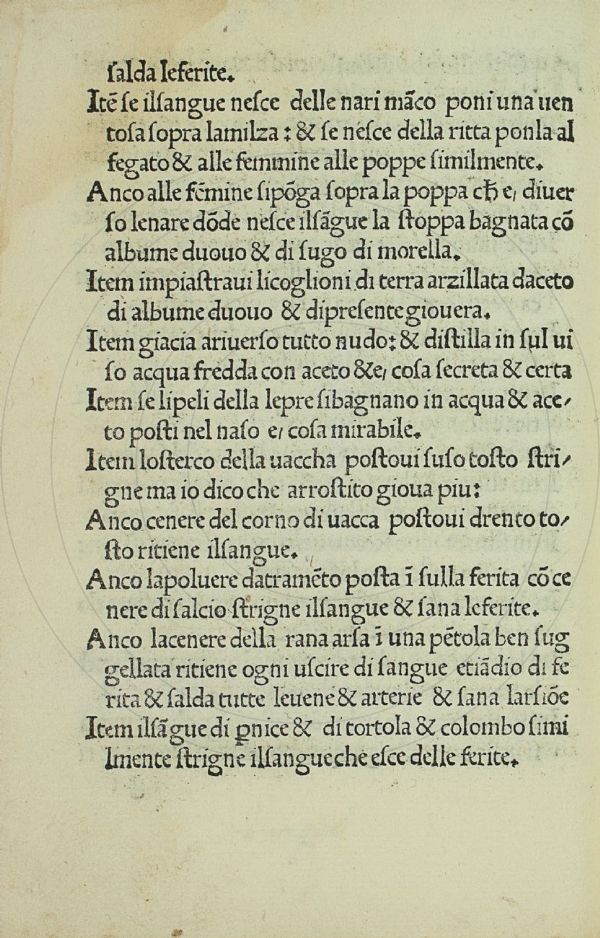 ſalda leferite.
Itē ſe ilſangue neſce delle nari māco poni una uen
toſa ſopra lamilza : & ſe neſce della ritta ponla al
fegato & alle femmine alle poppe ſimilmente.
Anco alle fēmine ſipōga ſopra la poppa cħ e, diuer
ſo lenare dōde neſce ilſāgue la ſtoppa bagnata cō
albume duouo & di ſugo di morella.
Item impiaſtraui licoglioni di terra arzillata daceto
di albume duouo & dipreſente giouera.
Item giacia ariuerſo tutto nudo: & diſtilla in ſul ui
ſo acqua fredda con aceto &e, coſa ſecreta & certa
Item ſe lipeli della lepre ſibagnano in acqua & ace/
to poſti nel naſo e, coſa mirabile.
Item loſterco della uaccha poſtoui ſuſo toſto ſtri/
gne ma io dico che arroſtito gioua piu:
Anco cenere del corno di uacca poſtoui drento to/
ſto ritiene ilſangue.
Anco lapoluere datramēto poſta ī ſulla ferita cō ce
nere di ſalcio ſtrigne ilſangue & ſana leferite.
Anco lacenere della rana arſa ī una pētola ben ſug
gellata ritiene ogni uſcire di ſangue etiādio di fe
rita & ſalda tutte leuene & arterie & ſana larſiōe
Item ilſāgue di ꝑnice & di tortola & colombo ſimi
lmente ſtrigne ilſangue che eſce delle ferite.